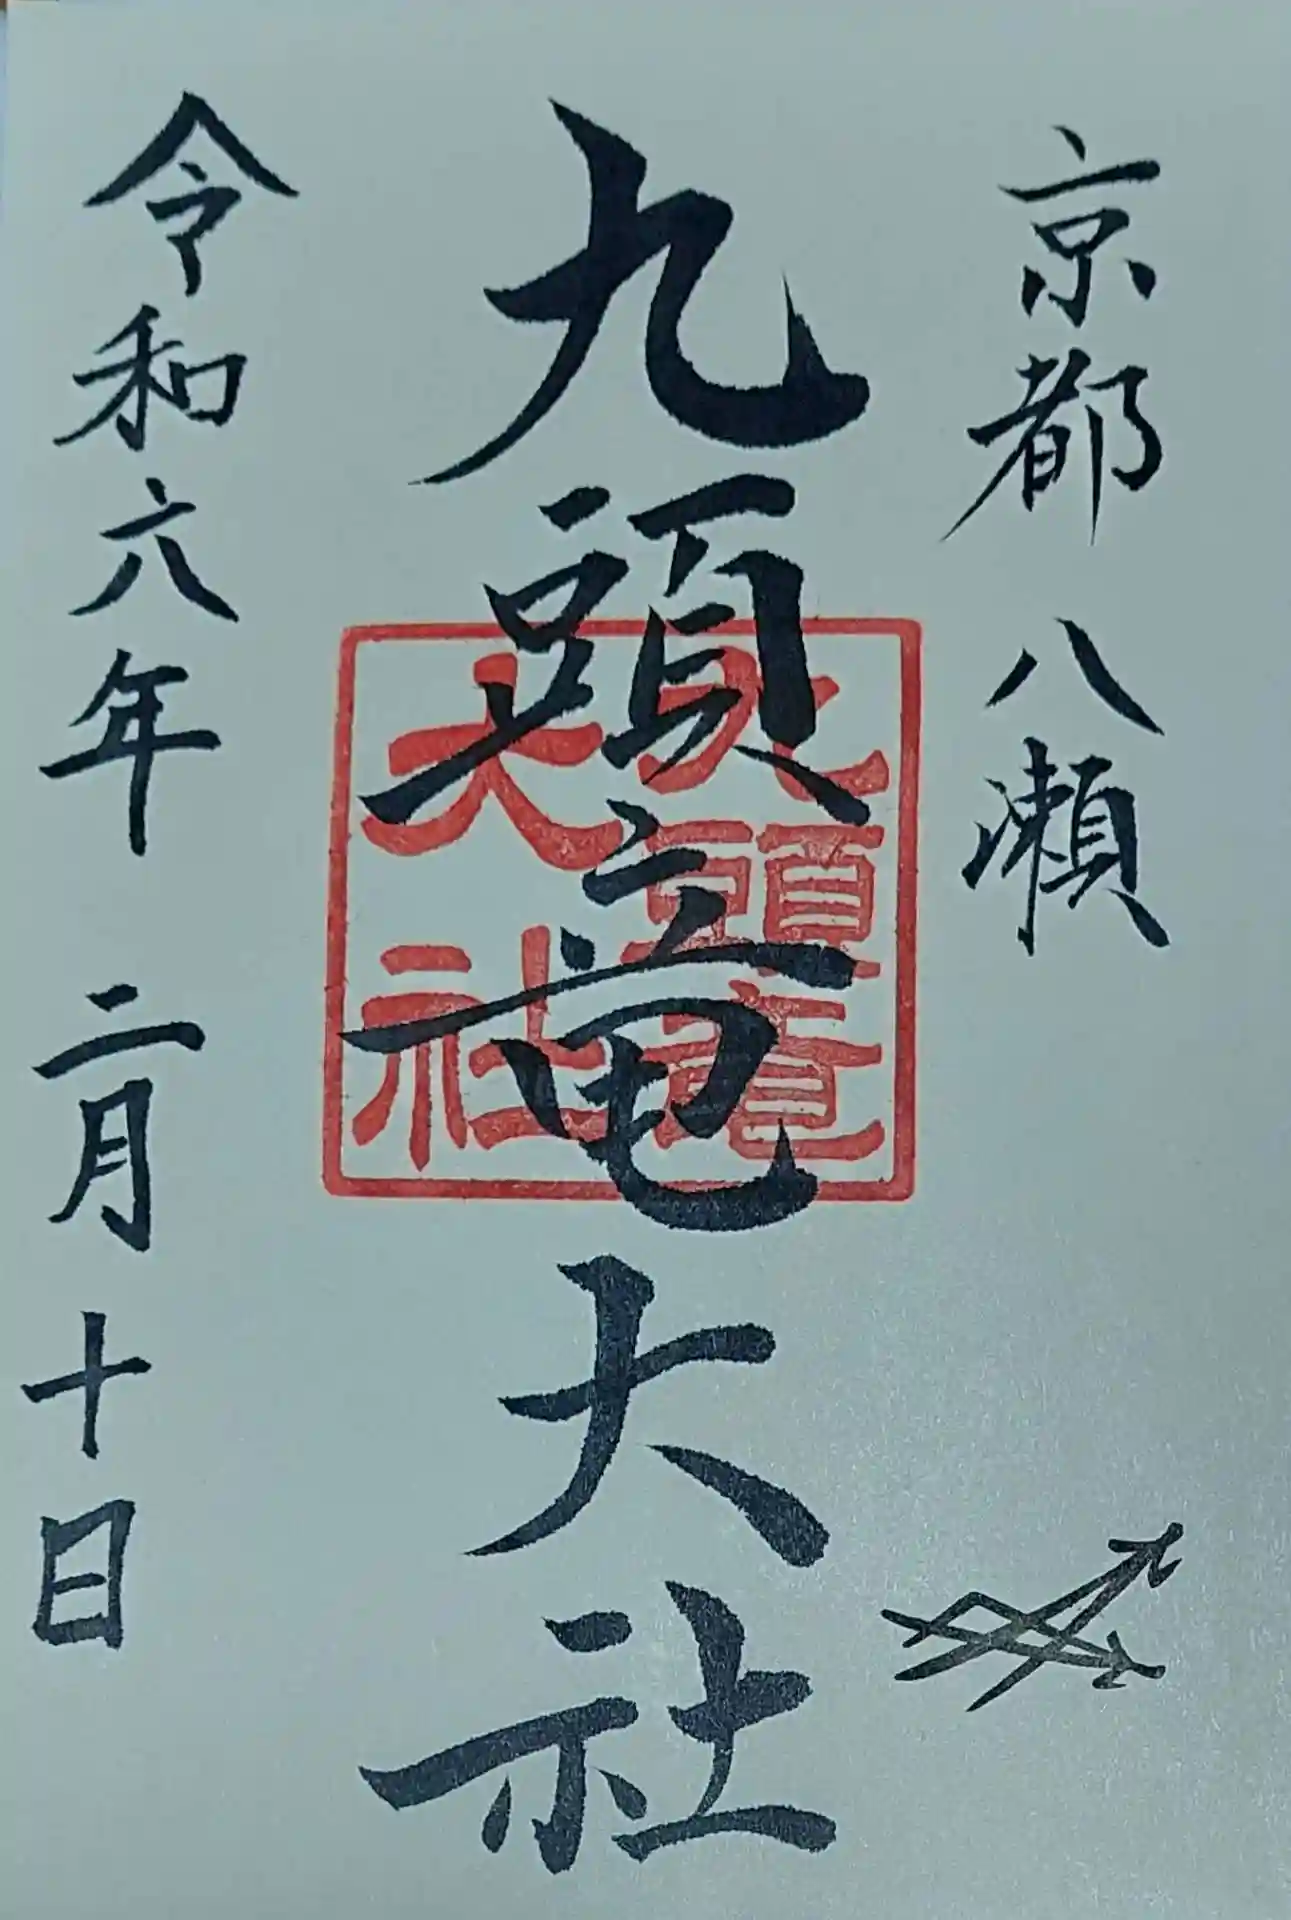 京都 八瀬
九頭竜大社
九頭竜
大社
令和六年 二月 十日